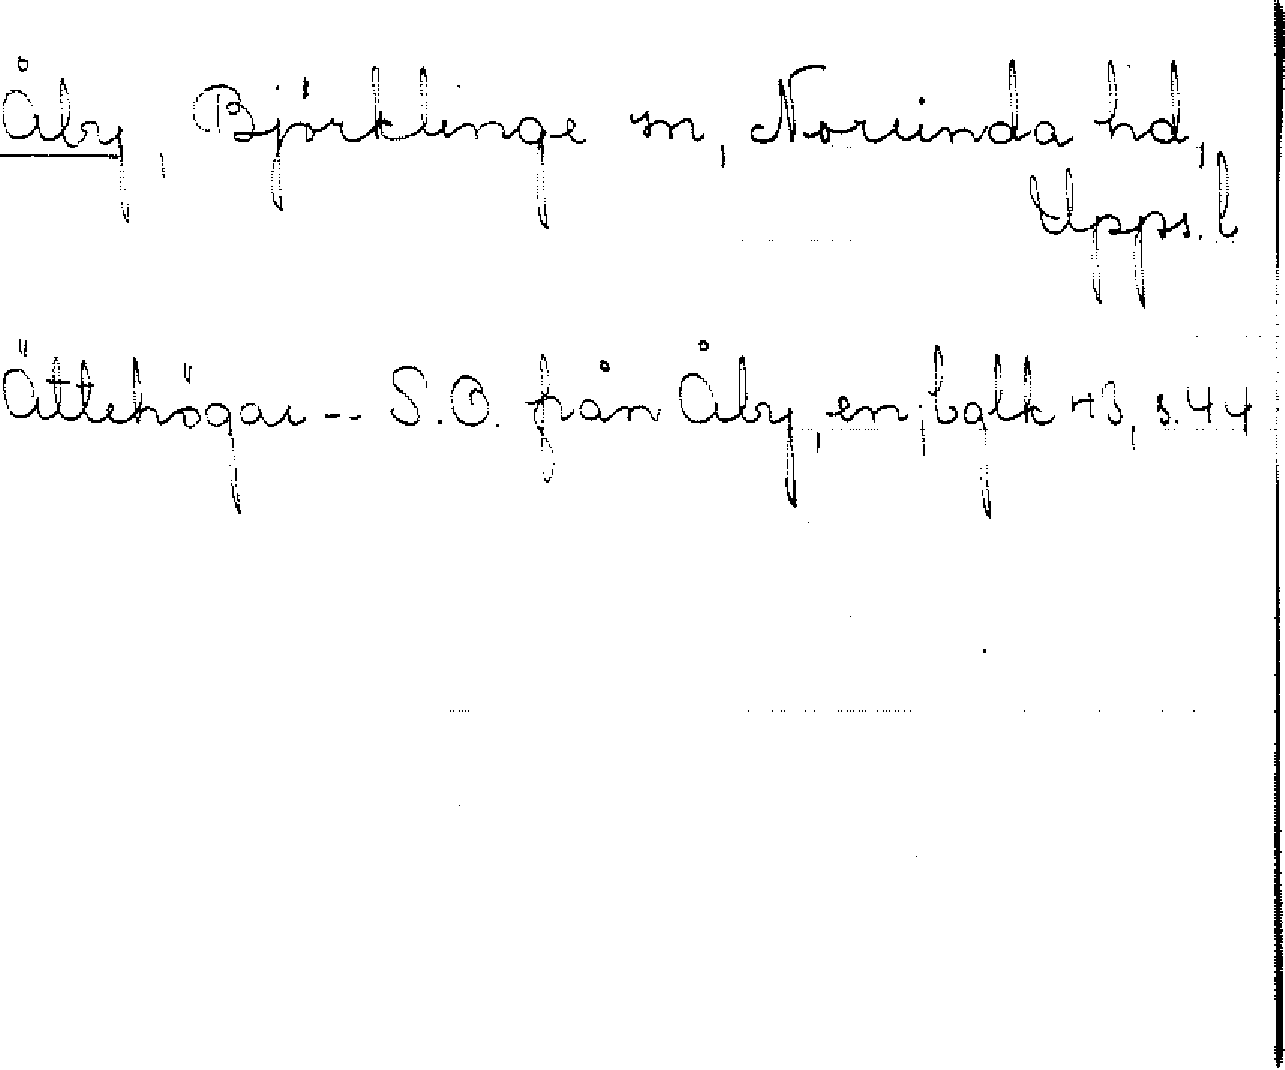 Åby, Björklinge sn, Norunda hd,
Upps. l
Ättehögar -- S.O. från Åby, en